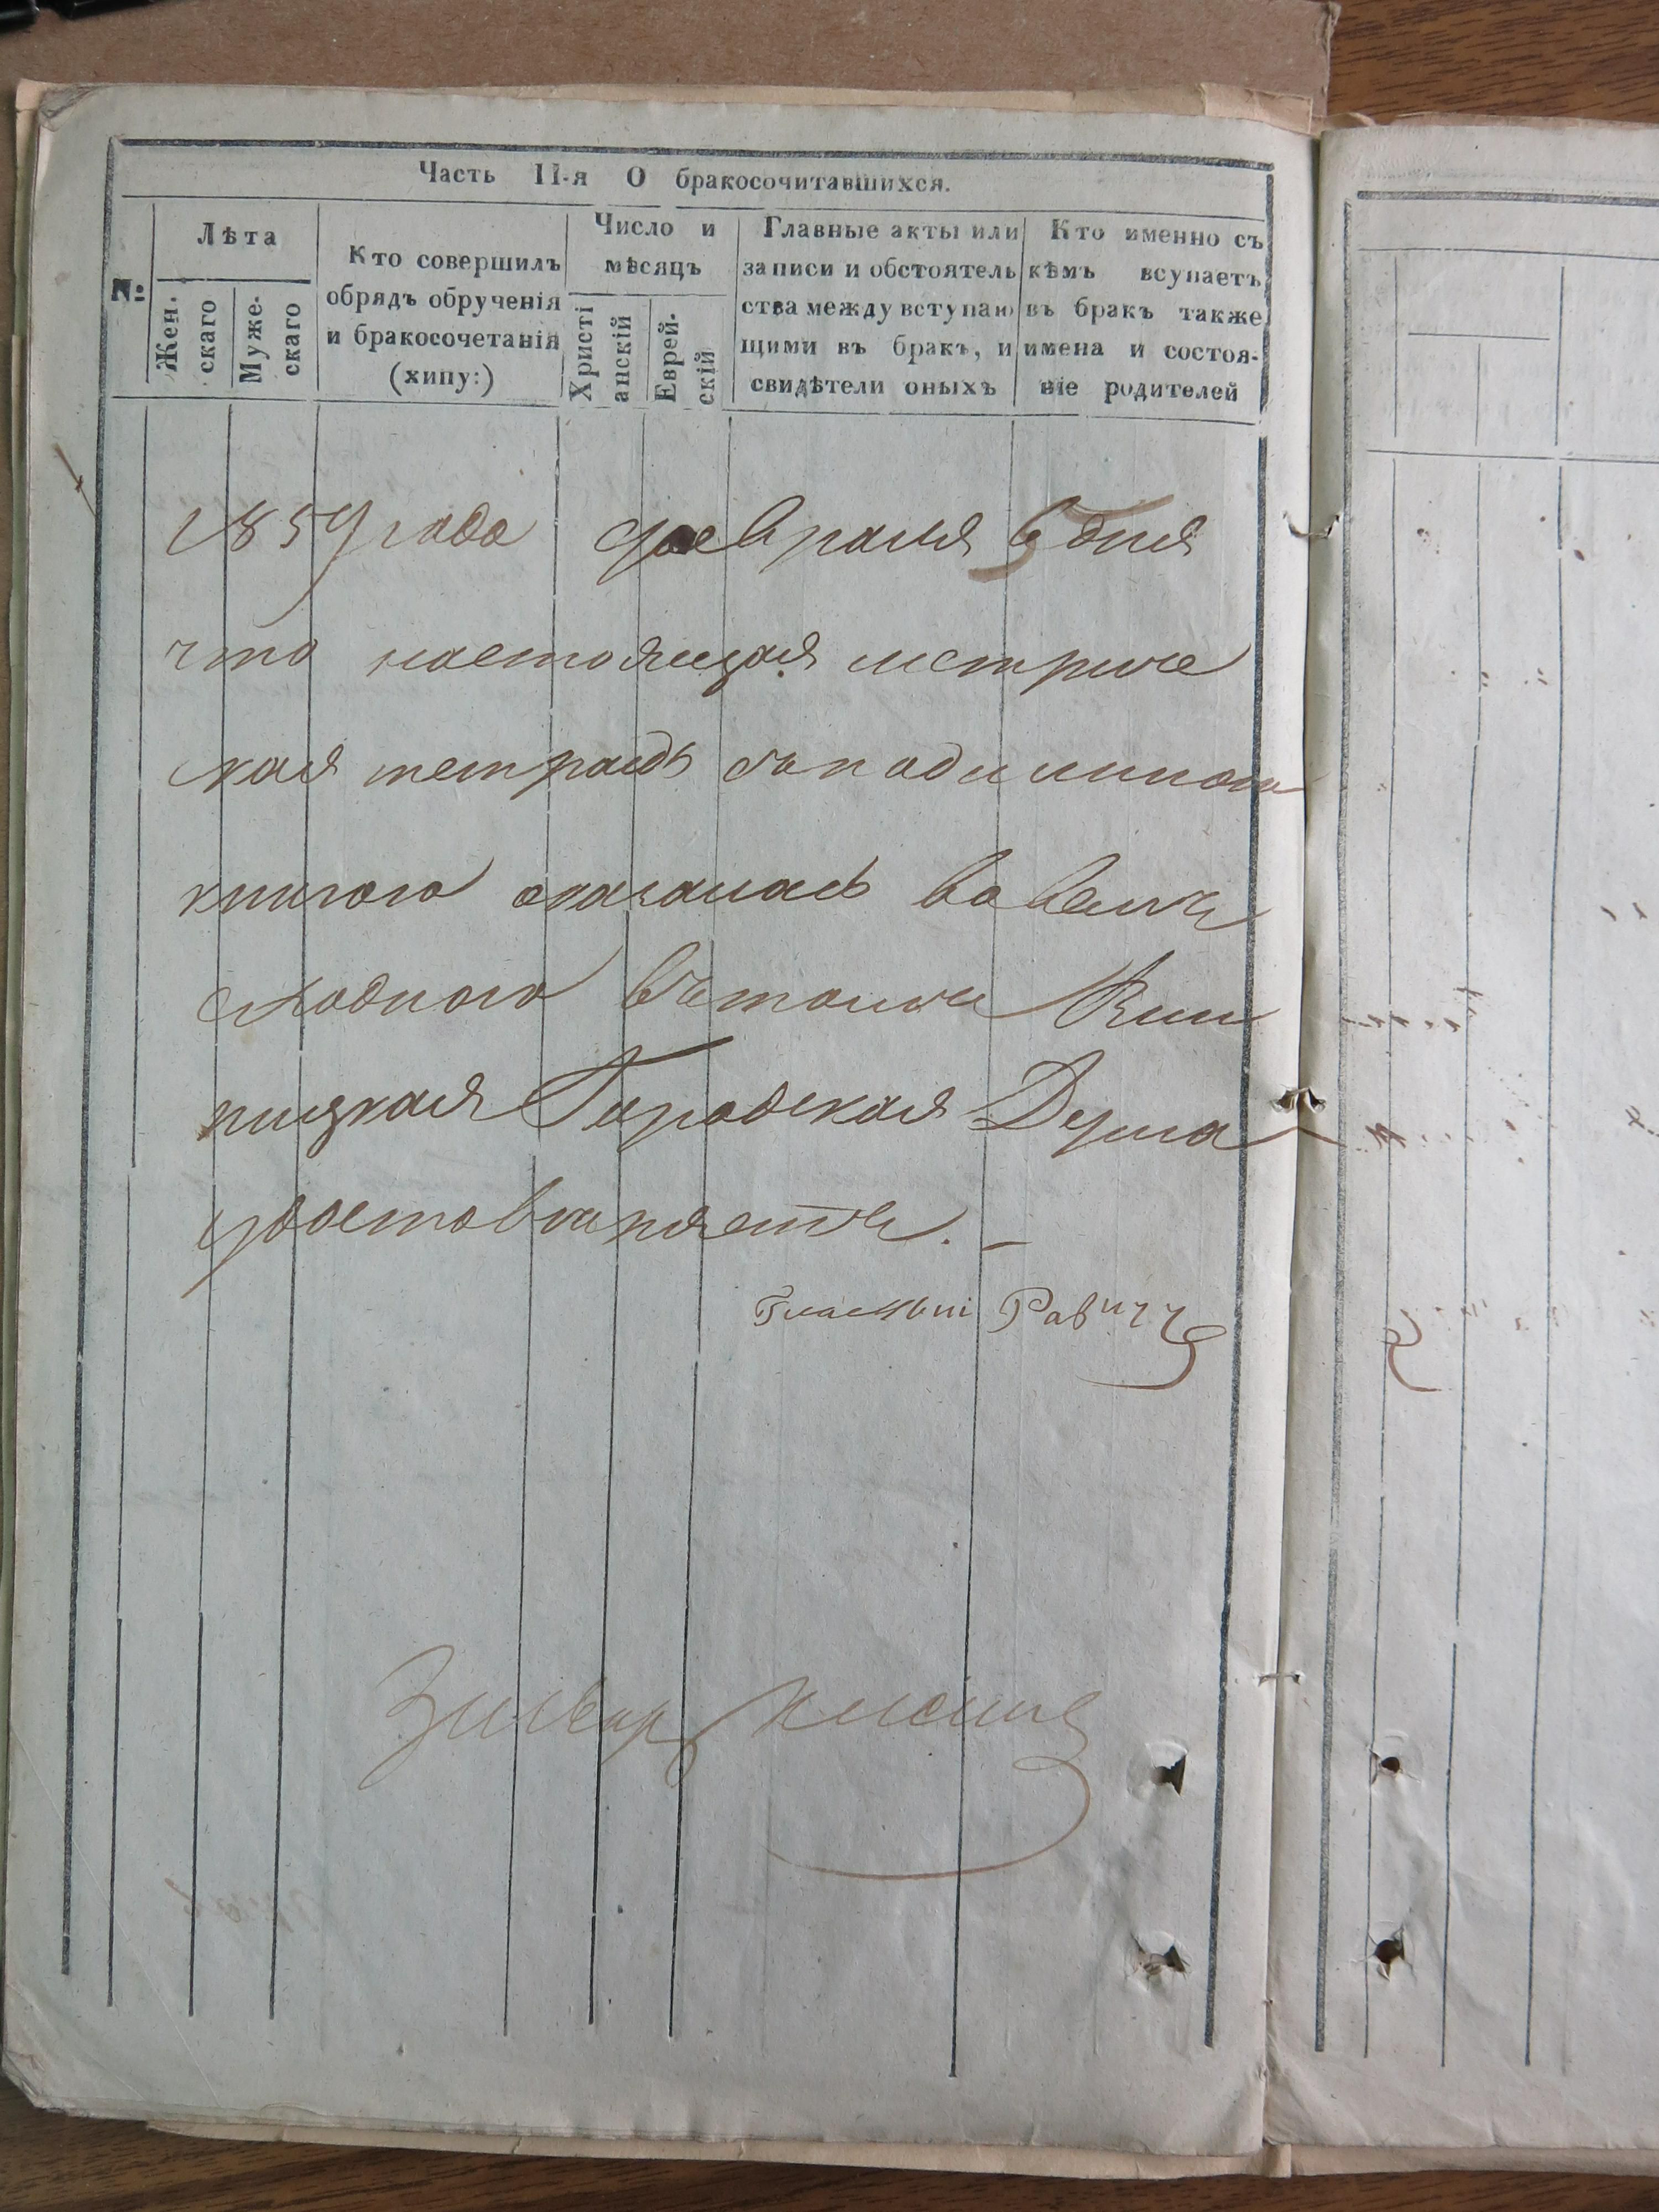 Часть II-я О бракосочитавшихся.
№:
Лѣта
Жен.
скаго
Муже-
скаго
Кто совершилъ
обрядъ обрученія
и бракосочетанія
(хипу:)
Число и
мѣсяцъ
Христі
анскій
Еврей-
скій
Главные акты или
записи и обстоятель
ства между вступаю
щими въ бракъ, и
свидѣтели оныхъ
Кто именно съ
кѣмъ всупаетъ
въ бракъ также
имена и состоя-
ніе родителей
1859 года февраля 6 дня
что настоящая метриче
ская тетрадь съ подлинною
книгою оказалась во всемъ
сходною въ томъ Вин
ницкая Городская Дума
удостовѣряетъ. –
Гласный Равичъ